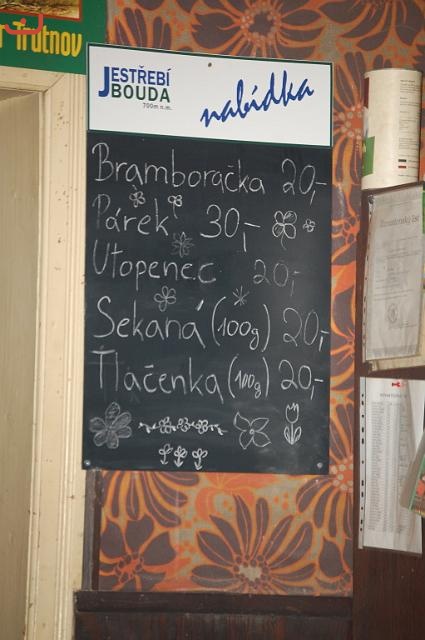 Trutnov
JESTŘEBÍ
BOUDA
700m n.m.
nabídka
Bramboračka 20,-
Párek 30,-
Utopenec 20,-
Sekaná (100g) 20,-
Tlačenka (100g) 20,-